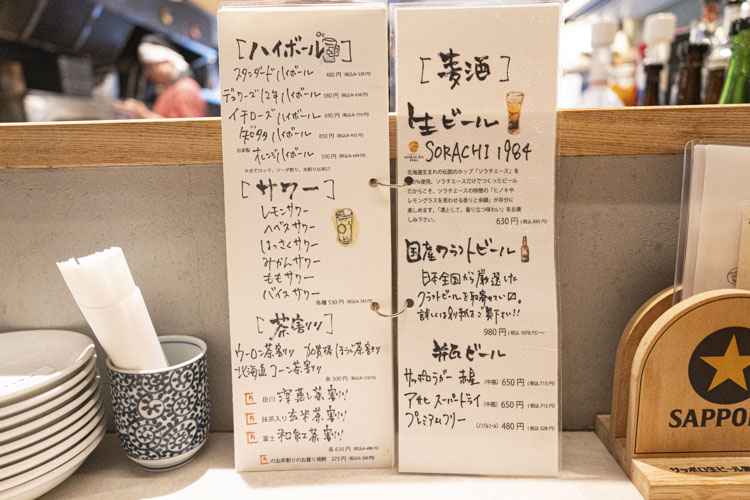 [ハイボール]
スタンダードハイボール 480円(税込み528円)
デュワーズ12年ハイボール 580円(税込み638円)
イチローズハイボール 690円(税込み759円)
知多ハイボール 850円(税込み935円)
自家製 オレンジハイボール 590円(税込み649円)
※全てロック、ソーダ割り、水割りお出来
[サワー]
レモンサワー
ヘベスサワー
はっさくサワー
みかんサワー
ももサワー
バイスサワー
各種 530円(税込み583円)
[茶割り]
ウーロン茶割り 加賀棒ほうじ茶割り
北海道コーン茶割り
各500円(税込み550円)
掛川 深蒸し茶割り
抹茶入り玄米茶割り
富士 和紅茶割り
各630円
のお茶割りのお替り焼酎 273円(税込み300円)
[麦酒]
生ビール
SORACHI 1984
北海道生まれの伝説のホップ「ソラチエース」を
0%使用。ソラチエースだけでつくったビール
だからこそ、ソラチエースの特徴の「ヒノキや
レモングラスを思わせる香りと余韻」が存分に
楽しめます。「凛として、香り立つ味わい」をお楽
しみ下さい。
630円(税込693円)
国産クラフトビール
日本全国から厳選した
クラフトビールを取寄せてい〼。
詳しくは別紙をご覧下さい!!
980円(税込1078円)〜
瓶ビール
サッポロラガー 赤星 (中瓶) 650円(税込715円)
アサヒ スーパードライ (中瓶) 650円(税込715円)
プレミアムフリー (ノンアルコール) 480円(税込528円)
SAPPO
サッポロ生ビール